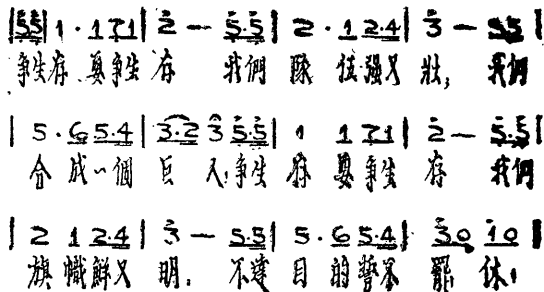 |5̲5̲| 1 · 1 7̲1̲ | 2 — 5̲·̲5̲ | 2 · 1 2̲·̲4̲ | 3 — 5̲5̲ |
爭生存 要爭生 存 我們 隊 伍强又 壯; 我們
| 5 · 6̲ 5̲·̲4̲ | 3̲·̲2̲ 3 5̲·̲5̲ | 1 1 7̲1̲ | 2 — 5̲·̲5̲ |
合 成一個 巨 人!爭生 存 要爭生 存 我們
| 2 1 2̲·̲4̲ | 3 — 5̲·̲5̲ | 5 · 6 5̲·̲4̲ | 3̲0̲ 1̲0̲ |
旗 幟鮮又 明. 不達 目 的誓不 罷! 休!